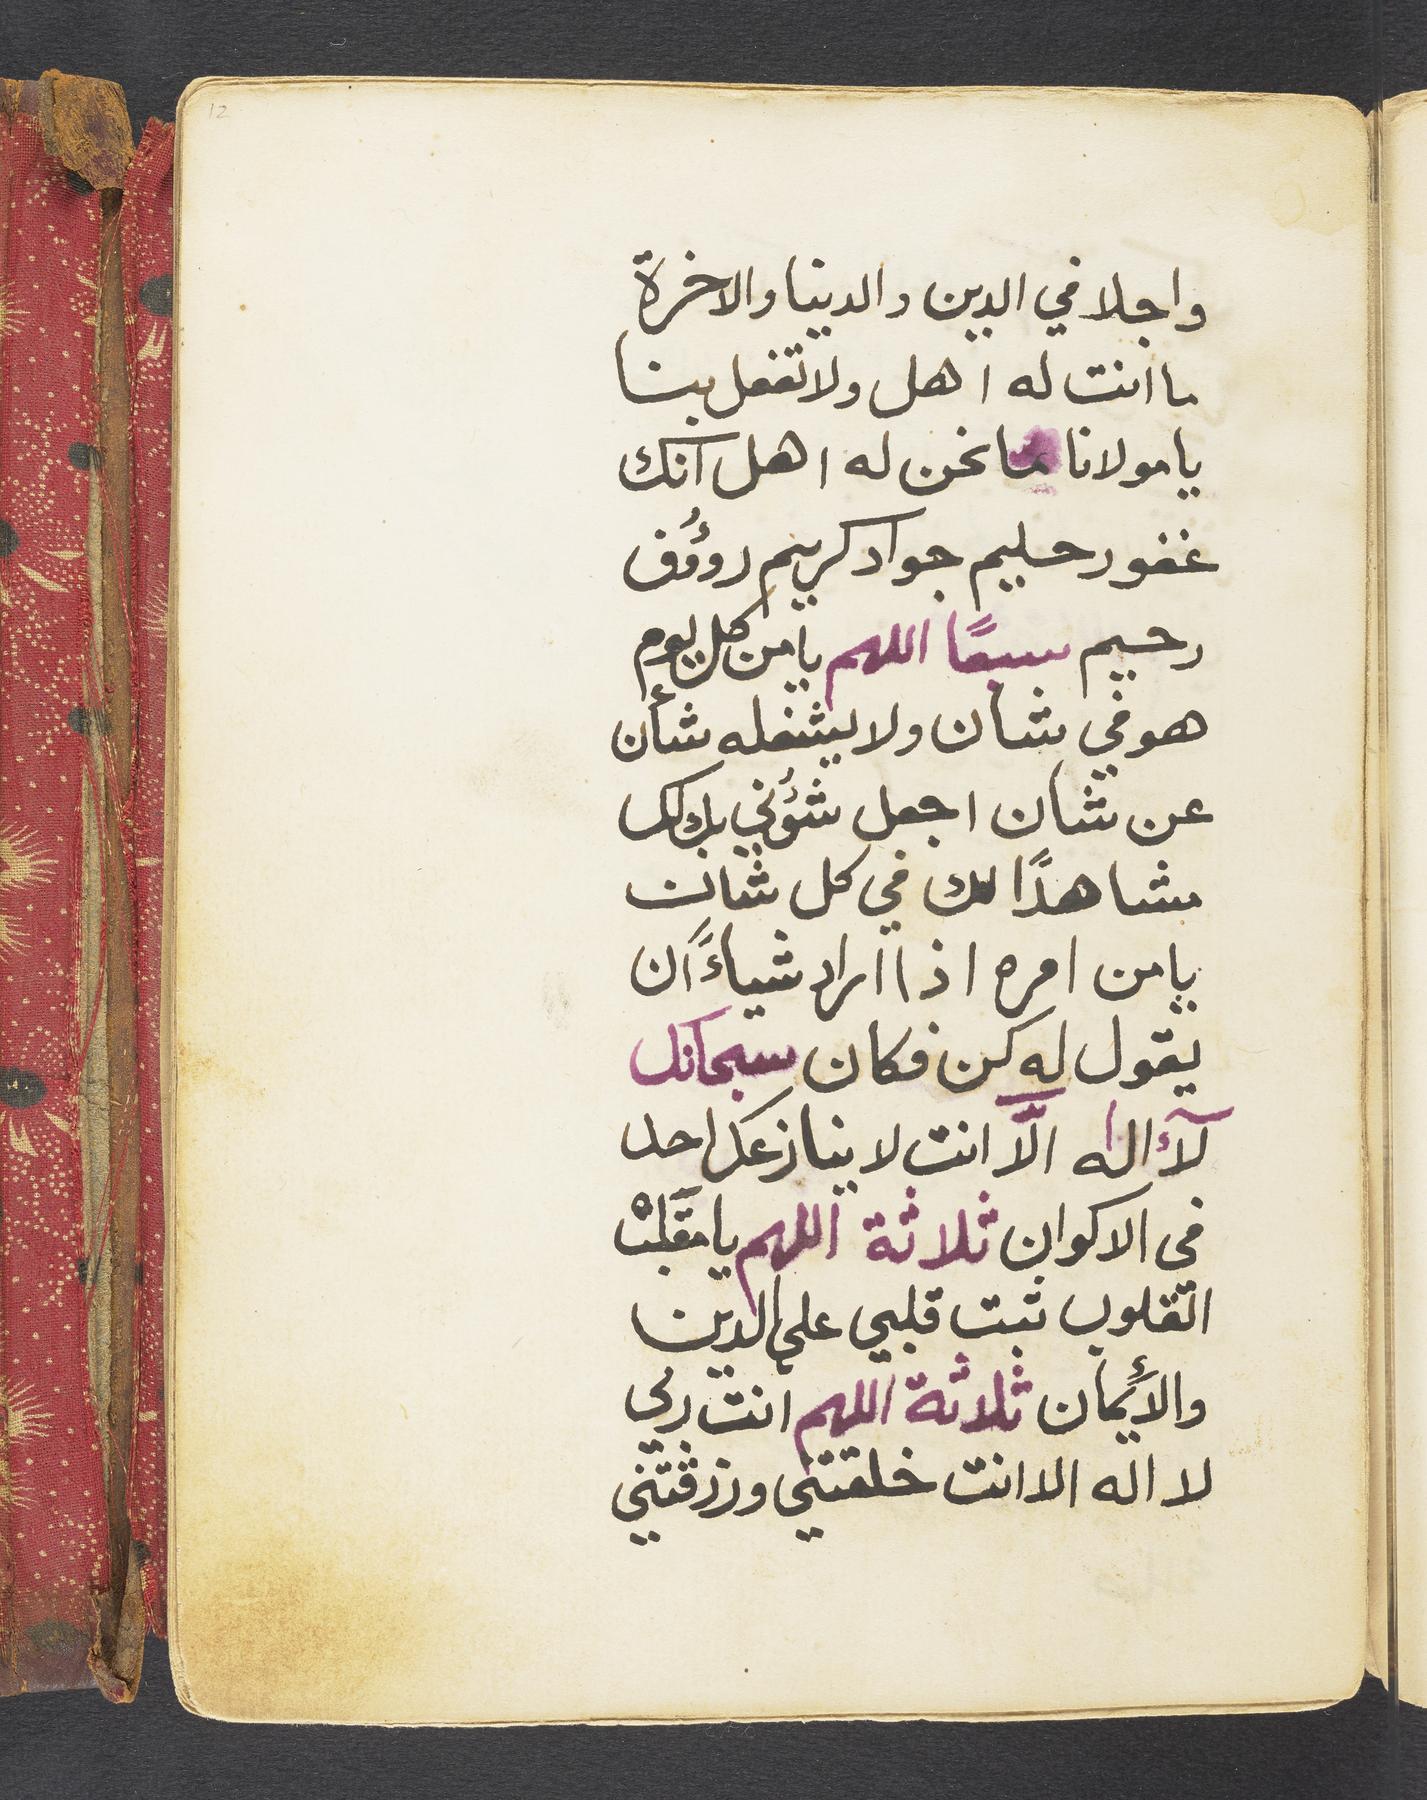 12
واجلا في الدين والدينا والاخرة
ما انت له اهل ولا تفعل بنا
يا مولانا ما نحن له اهل انك
غفور حليم جواد كريم روؤف
رحيم سبعًا اللهم يا من كل يوم
هو في شان ولا يشغله شأن
عن شان اجعل شؤني بك لك
مشاهدًا لك في كل شانت
يا من امره اذا اراد شياءً ان
يقول له كن فكان سبحانك
لآء اله الّا انت لا ينازعك احد
في الاكوان ثلاثة اللهم يا مقَلبْ
القلوب ثبت قلبي علي الدين
والأيمان ثلاثة اللهم انت ربي
لا اله الا انت خلقتني ورزقتني